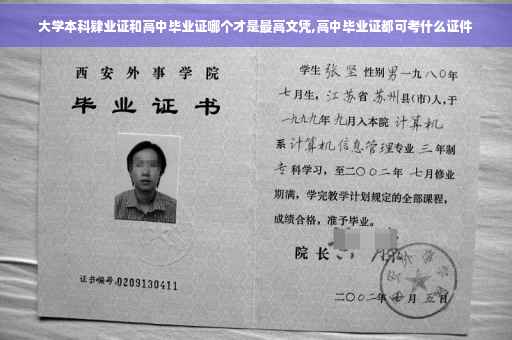 大学本科肄业证和高中毕业证哪个才是最高文凭,高中毕业证都可考什么证件
西安外事学院
毕业证书
证书编号:0209130411
学生 张坚 性别 男 一九八〇年
七月生, 江苏省 苏州县(市)人,于
一九九九年 九月入本院 计算机
系 计算机信息管理专业 三 年制
专科学习, 至二〇〇二年 七月修业
期满, 学完教学计划规定的全部课程,
成绩合格, 准予毕业。
院长
二〇〇二年 月 五日